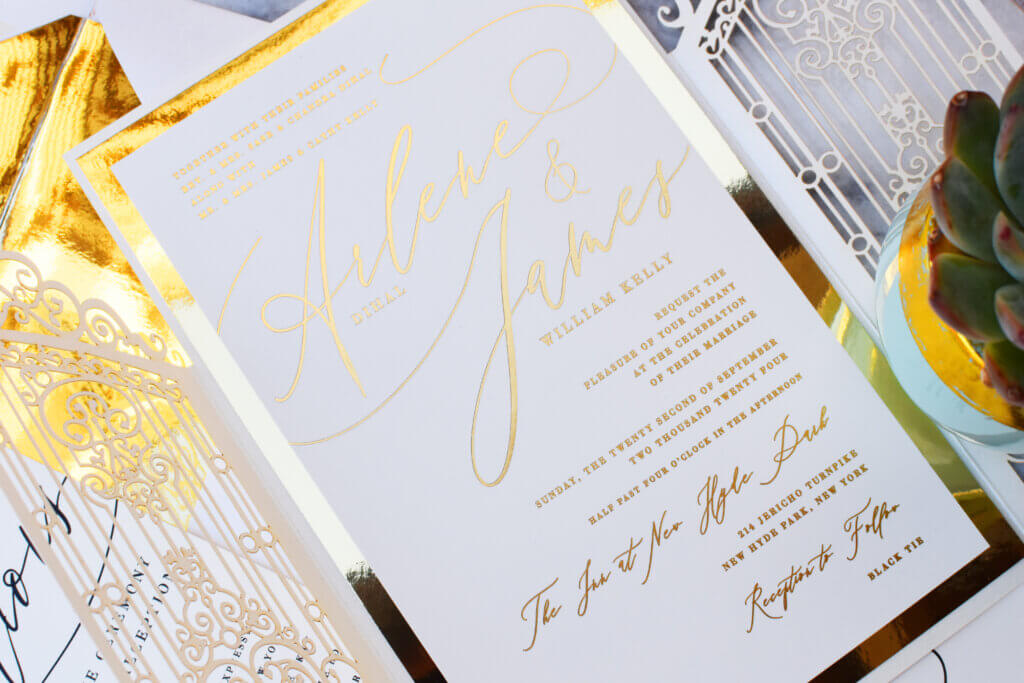 TOGETHER WITH THEIR FAMILIES
MR. & MRS.
MR. & MRS.
Arlene
DIHAL
&
James
WILLIAM KELLY
REQUEST THE
PLEASURE OF YOUR COMPANY
AT THE CELEBRATION
OF THEIR MARRIAGE
SUNDAY, THE TWENTY SECOND OF SEPTEMBER
TWO THOUSAND TWENTY FOUR
HALF PAST FOUR O'CLOCK IN THE AFTERNOON
The Inn at New Hyde Park
214 JERICHO TURNPIKE
NEW HYDE PARK, NEW YORK
Reception to Follow
BLACK TIE